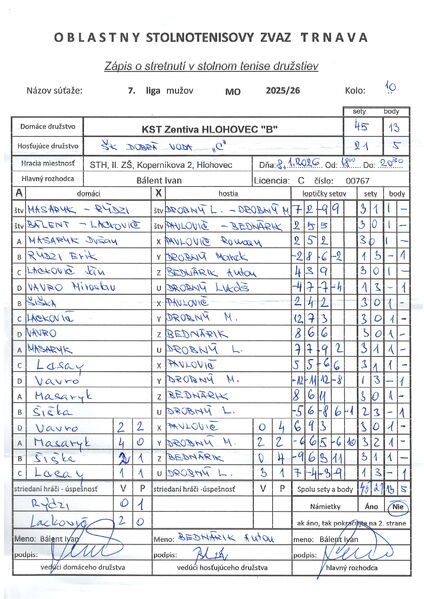 OBLASTNY STOLNOTENISOVY ZVAZ TRNAVA
Zápis o stretnutí v stolnom tenise družstiev
Názov súťaže: 7. liga mužov MO 2025/26 Kolo: 10
sety body
Domáce družstvo KST Zentiva HLOHOVEC "B" 45 13
Hosťujúce družstvo ŠK DOBRÁ VODA "C" 21 5
Hracia miestnosť STH, II. ZŠ, Koperníkova 2, Hlohovec Dňa: 9.1.2026 Od: 18:00 Do: 20:30
Hlavný rozhodca Bálent Ivan Licencia: C číslo: 00767
A domáci X hostia loptičky setov sety body
štv MASARYK - RÝDZI štv DROBNÝ L. - DROBNÝ M. 7 2 -9 9 3 1 1 -
štv BÁLENT - LACKOVIČ štv PAVLOVIČ - BEDNÁRIK 2 5 5 3 0 1 -
A MASARYK Dušan X PAVLOVIČ Roman 2 5 2 3 0 1 -
B RÝDZI Erik Y DROBNÝ Marek -2 8 -6 -2 1 3 - 1
C LACKOVIČ Ján Z BEDNÁRIK Anton 4 3 9 3 0 1 -
D VAVRO Miroslav U DROBNÝ Lukáš -4 7 -7 -4 1 3 - 1
B ŠIŠKA X PAVLOVIČ 2 4 2 3 0 1 -
C LACKOVIČ Y DROBNÝ M. 12 7 3 3 0 1 -
D VAVRO Z BEDNÁRIK 8 6 6 3 0 1 -
A MASARYK U DROBNÝ L. 7 7 -9 2 3 1 1 -
C X PAVLOVIČ 5 5 -6 6 3 1 1 -
D Vavro Y DROBNÝ M. -12 -11 12 -8 1 3 - 1
A Masaryk Z BEDNÁRIK 8 6 11 3 0 1 -
B Šiška U DROBNÝ L. -5 6 -8 6 -1 2 3 - 1
D Vavro 2 2 X PAVLOVIČ 0 4 6 9 3 3 0 1 -
A Masaryk 4 0 Y DROBNÝ M. 2 2 -6 6 5 -6 10 3 2 1 -
B Šiška 2 1 Z BEDNÁRIK 0 4 -9 6 3 11 3 1 1 -
C U DROBNÝ L. 3 1 7 -4 -3 -9 1 3 - 1
striedaní hráči - úspešnosť V P striedaní hráči - úspešnosť V P Spolu sety a body 45 21 13 5
Rýdzi 0 1 Námietky Áno Nie
Lackovič 2 0 ak áno, tak pokračujte na 2. strane
Meno: Bálent Ivan Meno: BEDNÁRIK Anton Meno: Bálent Ivan
podpis: podpis: podpis:
vedúci domáceho družstva vedúci hosťujúceho družstva hlavný rozhodca